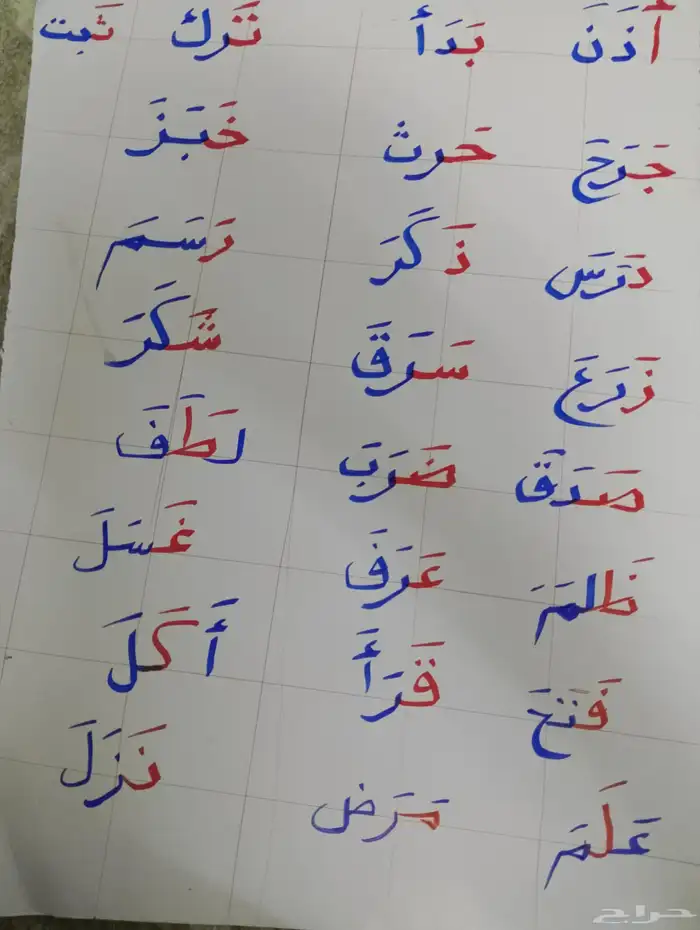 أَذَنَ بَدَأَ تَرك ثَبت
جَرَحَ حَرث خَبَزَ
دَرَسَ ذَكَرَ رَسَمَ
زَرَعَ سَرَقَ شَكَرَ
صَدَقَ ضَرَبَ لَطَفَ
ظَلَمَ عَرَفَ غَسَلَ
فَتَحَ قَرَأَ أَكَلَ
عَلَمَ مَرَض نَزَلَ
حراج